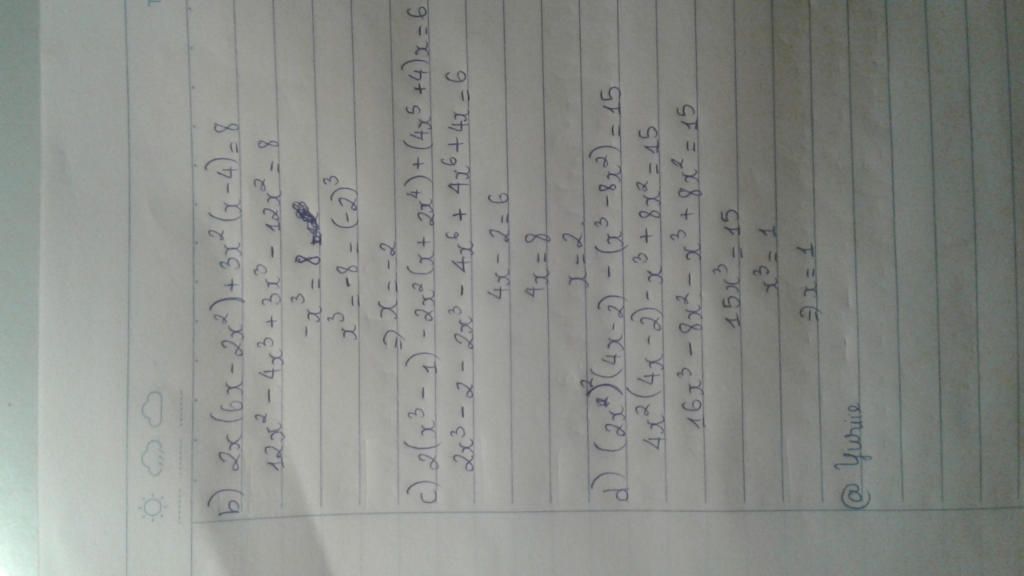 b) 2x(6x - 2x²) + 3x²(x - 4) = 8
12x² - 4x³ + 3x³ - 12x² = 8
-x³ = 8
x³ = -8 = (-2)³
⇒ x = -2
c) 2(x³ - 1) - 2x²(x + 2x⁴) + (4x⁵ + 4)x = 6
2x³ - 2 - 2x³ - 4x⁶ + 4x⁶ + 4x = 6
4x - 2 = 6
4x = 8
x = 2
d) (2x)²(4x - 2) - (x³ - 8x²) = 15
4x²(4x - 2) - x³ + 8x² = 15
16x³ - 8x² - x³ + 8x² = 15
15x³ = 15
x³ = 1
⇒ x = 1
@ Yurie